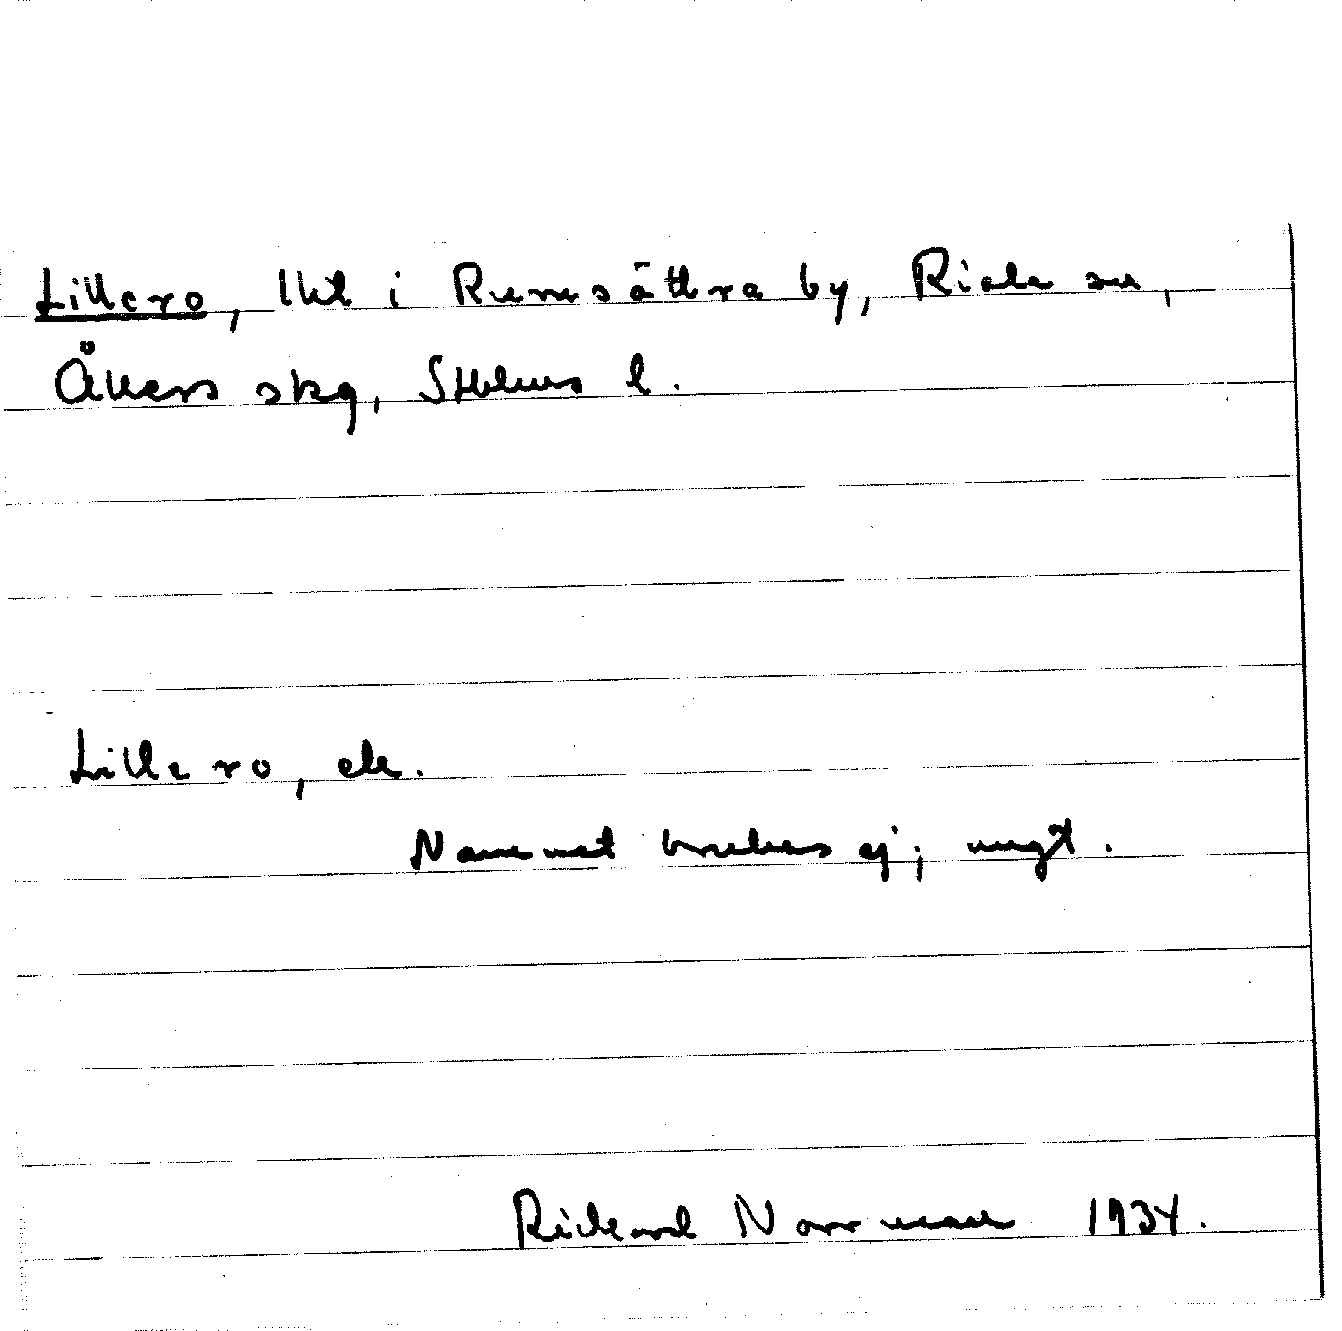 Lillero, lht i Rumsättra by, Riala sn,
Åkers skg, Sthlms l.
Lillero, dε.
Namnet brukas ej; nugt.
Rickard Norrman 1934.